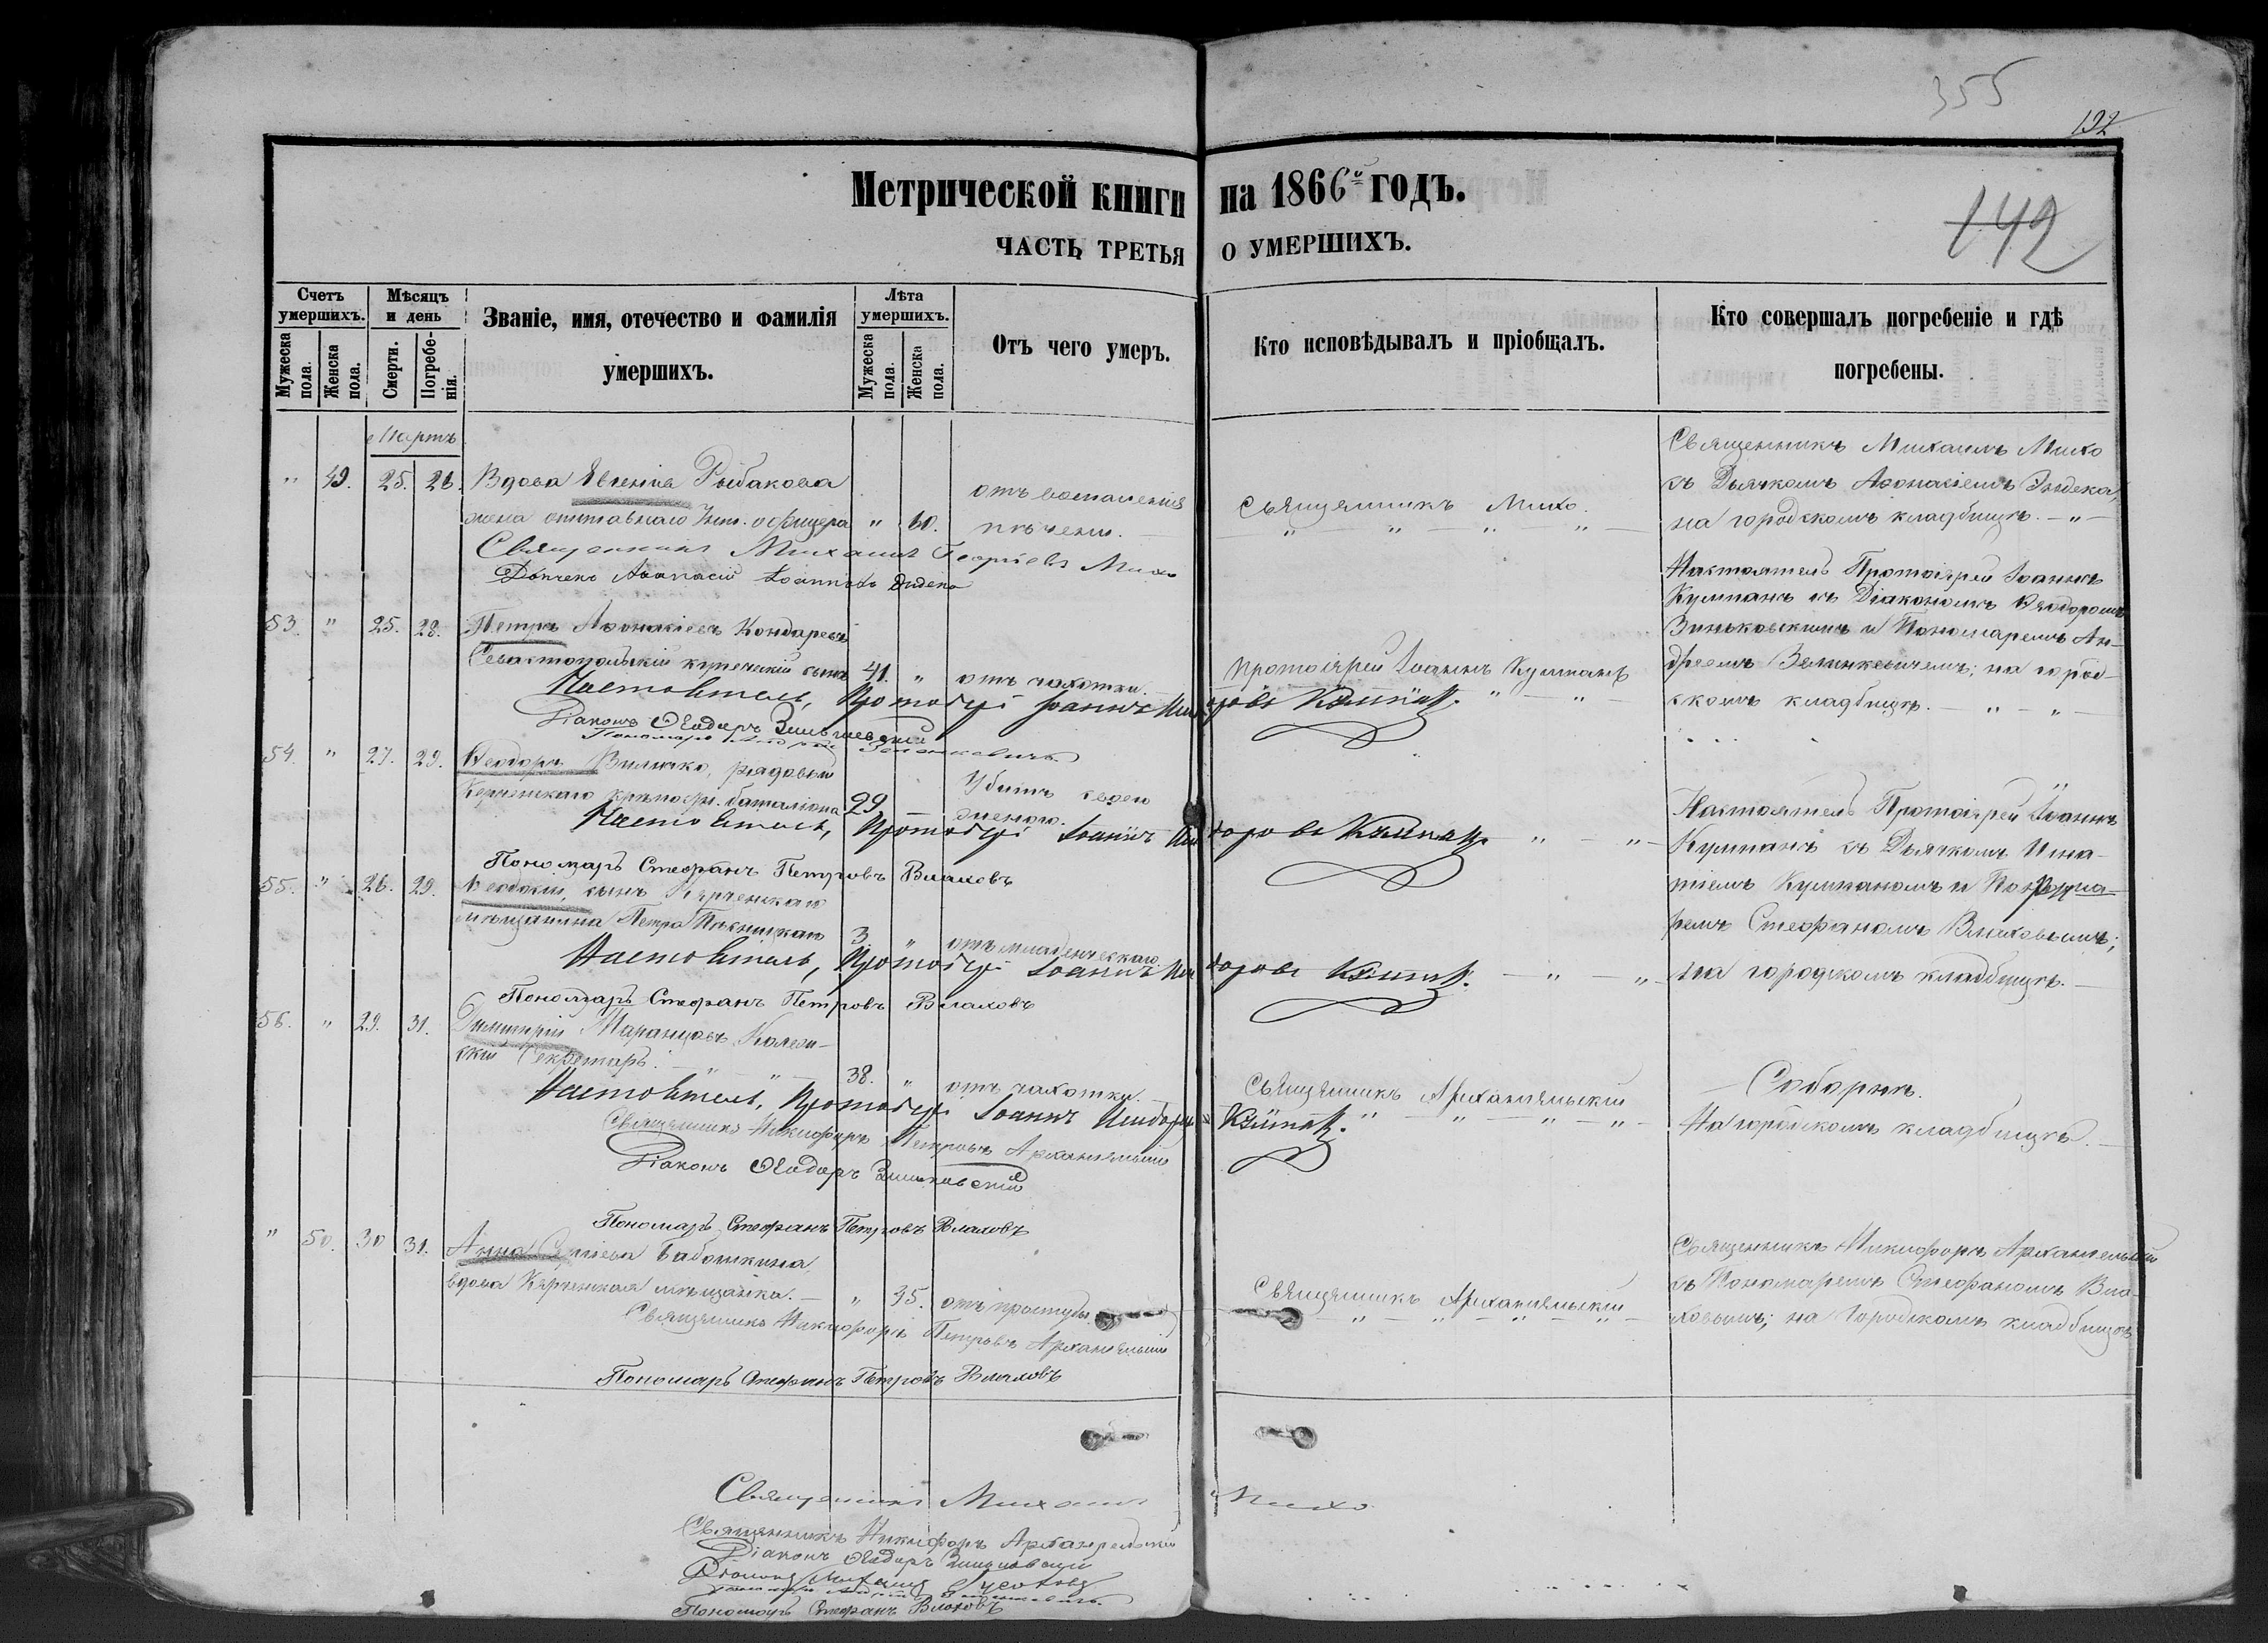 355
192
142
Метрической книги на 1866й годъ.
ЧАСТЬ ТРЕТЬЯ О УМЕРШИХЪ.
Счетъ умершихъ.
Мужеска пола.
Женска пола.
Мѣсяцъ и день
Смерти.
Погребе-нія.
Званіе, имя, отечество и фамилія
умершихъ.
Лѣта умершихъ.
Мужеска пола.
Женска пола.
Отъ чего умеръ.
Кто исповѣдывалъ и пріобщалъ.
Кто совершалъ погребеніе и гдѣ
погребены.
Мартъ
" 49. 25. 26. Вдова Евгенія Рыбакова
жена отставнаго Унт. офицера " 60. отъ воспаленія
печени.
Священникъ Михо.
Священникъ Михаилъ Михо
съ Дьячкомъ Афонасіемъ
на городскомъ кладбищѣ. — " —
Священникъ Михаилъ Георгіевъ Михо
Дьячекъ Афанасій Іоанновъ
53. " 25. 28. Петръ Афонасіевъ Кондаревъ
Севастопольскій купеческій сынъ 41. " отъ чахотки.
Протоіерей Іоаннъ Кумпанъ
Настоятель Протоіерей Іоаннъ
Кумпанъ съ Діакономъ Феодоромъ
Зиньковскимъ и Пономаремъ Ан-
дреемъ Зелинкевичемъ; на город-
скомъ кладбищѣ. — " — " —
Настоятель, Протоіерей Іоаннъ
Діаконъ Феодоръ Зиньковскій
Пономарь Андрей Зелинкевичъ
54. " 27. 29. Феодоръ Величко, рядовый
Керченскаго крѣпостн. баталіона 29. — Убитъ своею
женою.
Настоятель, Протоіерей Іоаннъ
Пономарь Стефанъ Петровъ Влаховъ
Настоятель Протоіерей Іоаннъ
Кумпанъ съ Дьячкомъ Игна-
тіемъ Кумпаномъ и Понома-
ремъ Стефаномъ Влаховымъ;
на городскомъ кладбищѣ.
55. " 26. 29. Феодосій, сынъ Керченскаго
мѣщанина Петра 3. " отъ младенческаго.
Настоятель, Протоіерей Іоаннъ
Пономарь Стефанъ Петровъ Влаховъ
56. " 29. 31. Димитрій Маранцовъ, Колеж-
скій Секретарь. 38. " отъ чахотки.
Священникъ Архангельскій
Соборнѣ.
На городскомъ кладбищѣ.
Настоятель, Протоіерей Іоаннъ
Священникъ Никифоръ Петровъ Архангельскій
Діаконъ Феодоръ Зиньковскій
Пономарь Стефанъ Петровъ Влаховъ
" 50. 30 31. Анна Бабошкина
вдова Керченская мѣщанка. — " 35. отъ простуды
Священникъ Архангельскій
Священникъ Никифоръ Архангельскій
съ Пономаремъ Стефаномъ Вла-
ховымъ; на Городскомъ кладбищѣ
Священникъ Никифоръ Петровъ Архангельскій
Пономарь Стефанъ Петровъ Влаховъ
Священникъ Михаилъ Михо
Священникъ Никифоръ Архангельскій
Діаконъ Феодоръ Зиньковскій
Діаконъ Михаилъ
Пономарь Стефанъ Влаховъ